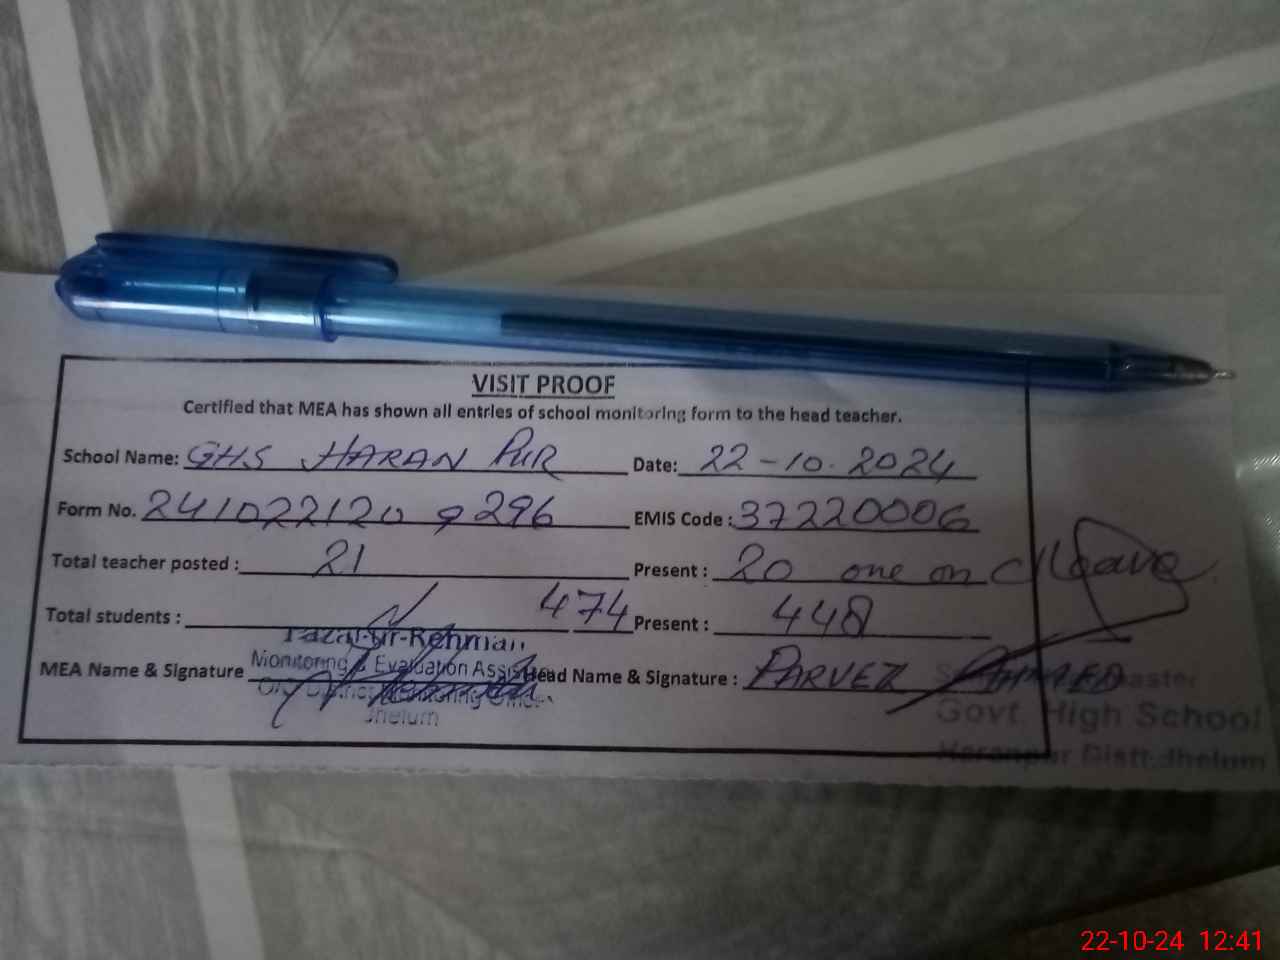 VISIT PROOF
Certified that MEA has shown all entries of school monitoring form to the head teacher.
School Name: GHS HARAN PUR Date: 22-10-2024
Form No. 241022120 9296 EMIS Code: 37220006
Total teacher posted: 21 Present: 20 one on C/leave
Total students: 474 Present: 448
Fazal-ur-Rehman
MEA Name & Signature Monitoring & Evaluation Assistant Head Name & Signature: PARVEZ AHMED
District Monitoring Officer
Jhelum
Govt. High School
Haranpur Distt. Jhelum
22-10-24 12:41